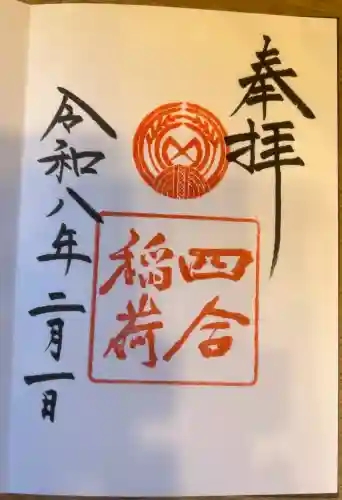 奉拝
四合
稲荷
令和八年二月一日